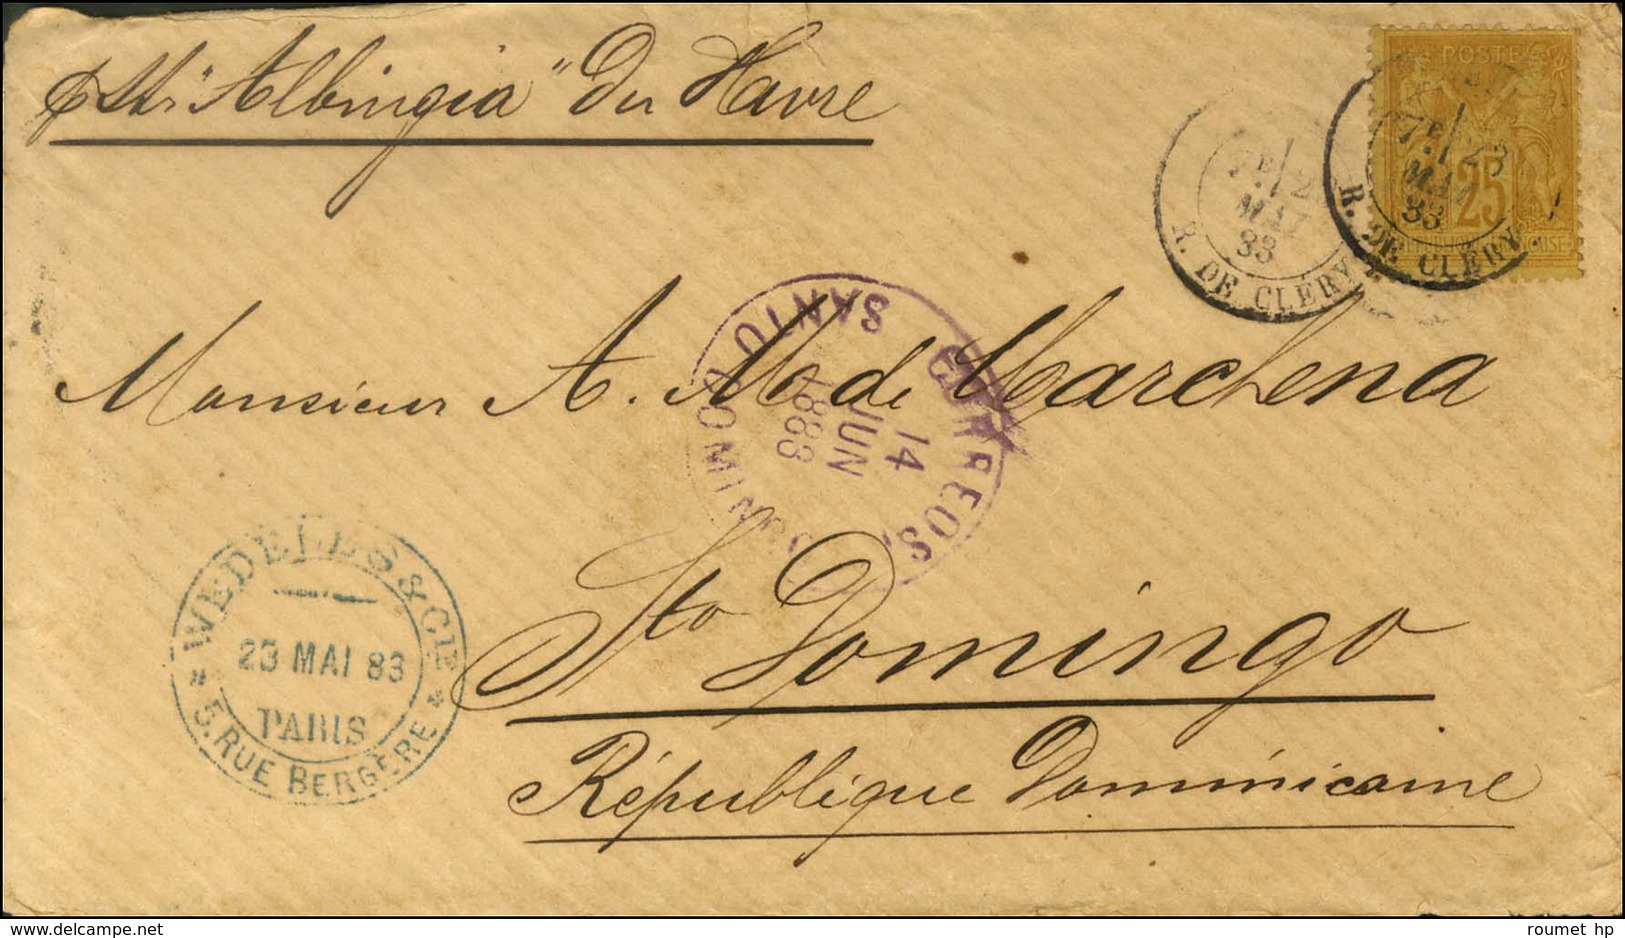 p Str "Albingia" du Havre
POSTE
25
7E / 23
MAI
83
R. DE CLERY
7E / 2
MAI
83
R. DE CLERY
CORREOS
SANTO DOMINGO
14
JUN
1883
Monsieur A. M. de Marchena
Sto Domingo
République Dominicaine
WEDELES & CIE
23 MAI 83
PARIS
5, RUE BERGERE
delcampe.net
roumet hp